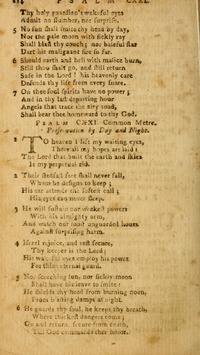 214 P S A L M CXXI.
Thy holy guardian's wakeful eyes
Admit no slumber, nor surprise.
5 No sun shall smite thy head by day,
Nor the pale moon with sickly ray
Shall blast thy couch; no baleful star
Dart his malignant fire so far.
6 Should earth and hell with malice burn,
Still thou shalt go, and still return
Safe in the Lord! his heavenly care
Defends thy life from every snare.
7 On thee foul spirits have no power;
And in thy last departing hour
Angels that trace the airy road,
Shall bear thee homeward to thy God.
P S A L M CXXI. Common Metre.
Preservation by Day and Night.
1 TO heaven I lift my waiting eyes,
There all my hopes are laid:
The Lord that built the earth and skies
Is my perpetual aid.
2 Their stedfast feet shall never fall,
Whom he designs to keep;
His ear attends the softest call;
His eyes can never sleep.
3 He will sustain our weakest powers
With his almighty arm,
And watch our most unguarded hours
Against surprising harm.
4 Israel rejoice, and rest secure,
Thy keeper is the Lord;
His wakeful eyes employ his power
For thine eternal guard.
5 Nor scorching sun, nor sickly moon
Shall have his leave to smite:
He shields thy head from burning noon,
From blasting damps at night.
6 He guards thy soul, he keeps thy breath,
Where thickest dangers come;
Go and return, secure from death,
Till God commands thee home.